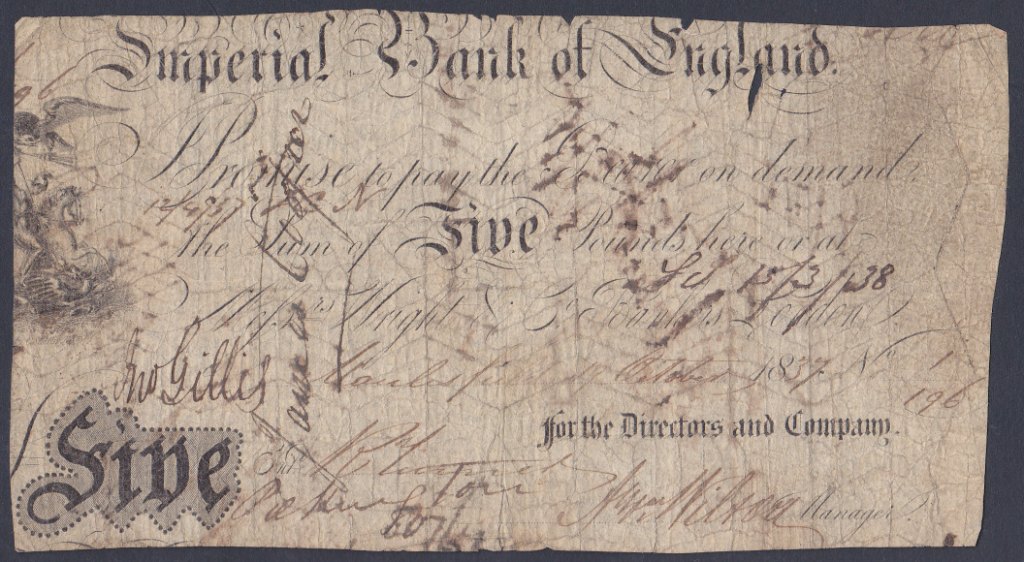 Imperial Bank of England.
Promise to pay the Bearer on demand
12/9737
The Sum of Five Pounds here or at
15/3/38
Messrs Wright & Co Bankers London
Jno Gillis
James Taylor
Macclesfield October 1837 No 1
196
for the Directors and Company.
Five
Ent
Jno Wilson Manager